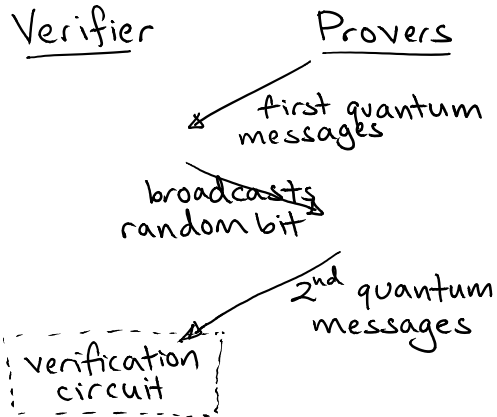 Verifier
Provers
first quantum
messages
broadcasts
random bit
2nd quantum
messages
verification
circuit